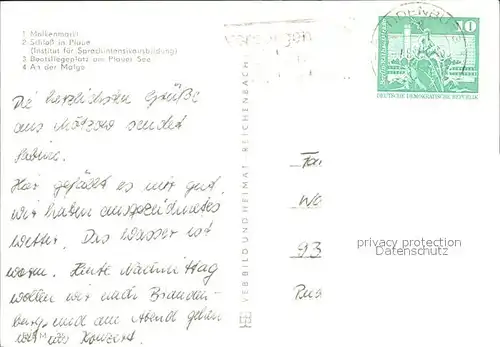 1 Molkenmarkt
2 Schloß in Plaue
(Institut für Sprachintensivausbildung)
3 Bootsliegeplatz am Plauer See
4 An der Malge
Die herzlichsten Grüße
aus Mötzow sendet
Sabine.
Hier gefällt es mir gut,
wir haben ausgezeichnetes
Wetter. Das Wasser ist
warm. Heute Nachmittag
wollen wir nach Branden-
burg, und am Abend gehen
wir ins Konzert.
VEB BILD UND HEIMAT REICHENBACH
10
DEUTSCHE DEMOKRATISCHE REPUBLIK
Fam
Wo
93
privacy protection
Datenschutz